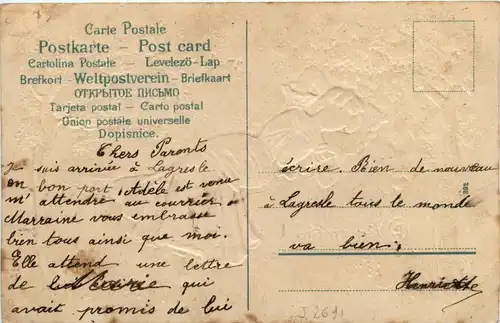 Carte Postale
Postkarte – Post card
Cartolina Postale – Levelező-Lap
Brefkort - Weltpostverein - Briefkaart
ОТКРЫТОЕ ПИСЬМО
Tarjeta postal – Carto postal
Union postale universelle
Dopisnice.
Chers Parents
Je suis arrivée à Lagresle
en bon port, Adèle est venu
m'attendre au courrier
Marraine vous embrasse
bien tous ainsi que moi.
Elle attend une lettre
de la qui
avait promis de lui
écrire. Bien de nouveau
à Lagresle tous le monde
va bien.
Henriette
J 2691